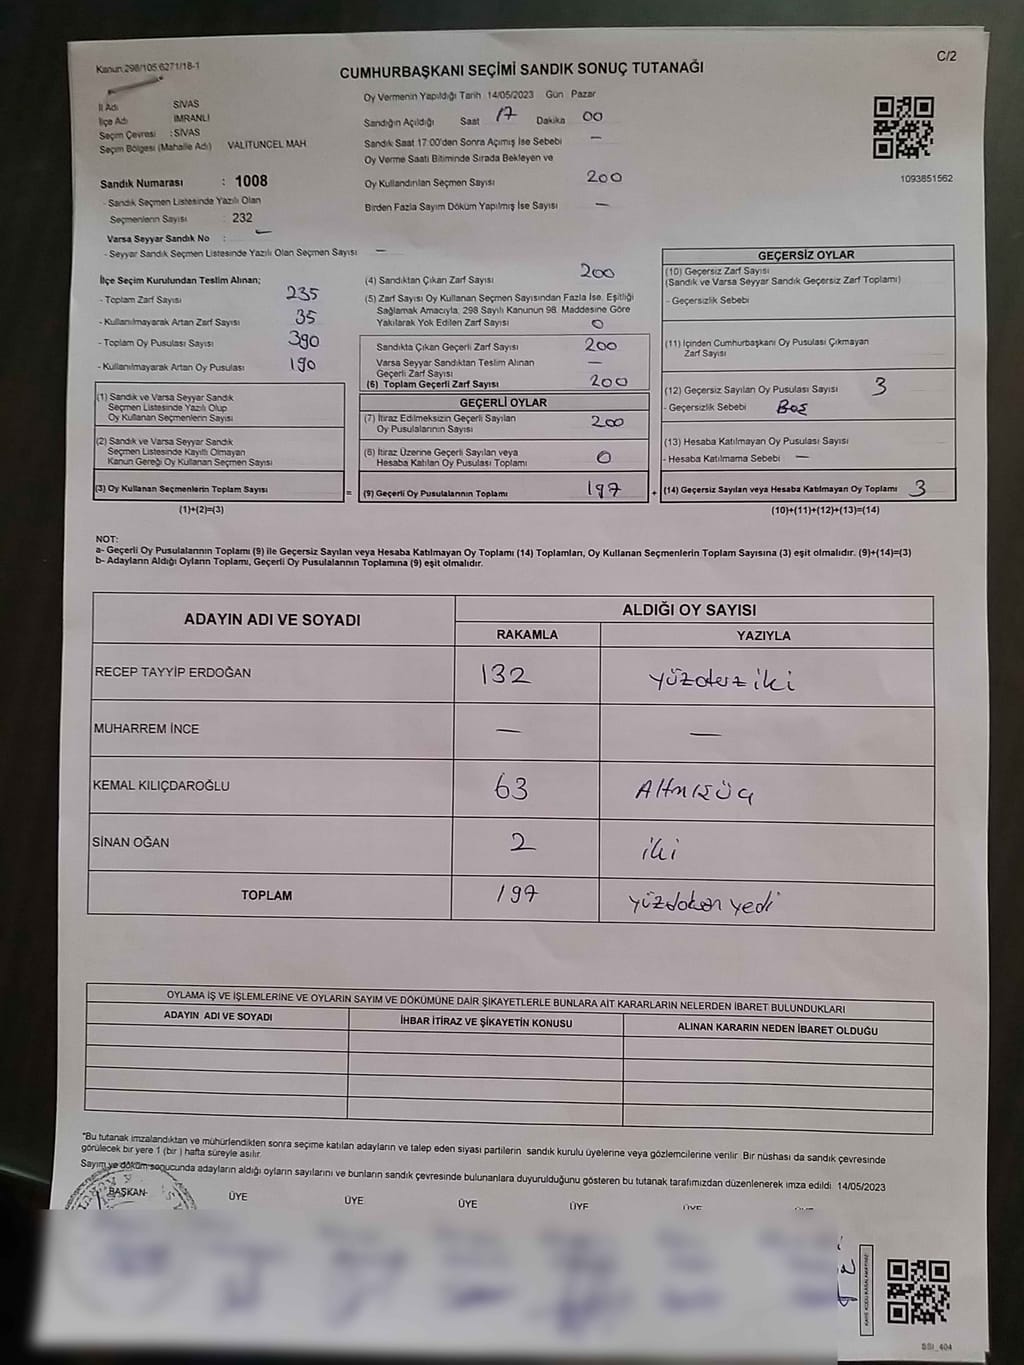 Kanun:298/105 6271/18-1
C/2
CUMHURBAŞKANI SEÇİMİ SANDIK SONUÇ TUTANAĞI
İl Adı SİVAS
İlçe Adı İMRANLI
Seçim Çevresi : SİVAS
Seçim Bölgesi (Mahalle Adı) VALİTUNCEL MAH
Sandık Numarası : 1008
- Sandık Seçmen Listesinde Yazılı Olan
Seçmenlerin Sayısı : 232
Varsa Seyyar Sandık No : —
- Seyyar Sandık Seçmen Listesinde Yazılı Olan Seçmen Sayısı —
Oy Vermenin Yapıldığı Tarih 14/05/2023 Gün Pazar
Sandığın Açıldığı Saat 17 Dakika 00
Sandık Saat 17:00'den Sonra Açımış İse Sebebi —
Oy Verme Saati Bitiminde Sırada Bekleyen ve
Oy Kullandırılan Seçmen Sayısı 200
Birden Fazla Sayım Döküm Yapılmış İse Sayısı —
1093851562
İlçe Seçim Kurulundan Teslim Alınan;
- Toplam Zarf Sayısı 235
- Kullanılmayarak Artan Zarf Sayısı 35
- Toplam Oy Pusulası Sayısı 390
- Kullanılmayarak Artan Oy Pusulası 190
(1) Sandık ve Varsa Seyyar Sandık
Seçmen Listesinde Yazılı Olup
Oy Kullanan Seçmenlerin Sayısı
(2) Sandık ve Varsa Seyyar Sandık
Seçmen Listesinde Kayıtlı Olmayan
Kanun Gereği Oy Kullanan Seçmen Sayısı
(3) Oy Kullanan Seçmenlerin Toplam Sayısı
(1)+(2)=(3)
(4) Sandıktan Çıkan Zarf Sayısı 200
(5) Zarf Sayısı Oy Kullanan Seçmen Sayısından Fazla İse, Eşitliği
Sağlamak Amacıyla, 298 Sayılı Kanunun 98. Maddesine Göre
Yakılarak Yok Edilen Zarf Sayısı 0
Sandıkta Çıkan Geçerli Zarf Sayısı 200
Varsa Seyyar Sandıktan Teslim Alınan
Geçerli Zarf Sayısı —
(6) Toplam Geçerli Zarf Sayısı 200
GEÇERLİ OYLAR
(7) İtiraz Edilmeksizin Geçerli Sayılan
Oy Pusulalarının Sayısı 200
(8) İtiraz Üzerine Geçerli Sayılan veya
Hesaba Katılan Oy Pusulası Toplamı 0
= (9) Geçerli Oy Pusulalarının Toplamı 197 +
GEÇERSİZ OYLAR
(10) Geçersiz Zarf Sayısı
(Sandık ve Varsa Seyyar Sandık Geçersiz Zarf Toplamı)
- Geçersizlik Sebebi
(11) İçinden Cumhurbaşkanı Oy Pusulası Çıkmayan
Zarf Sayısı
(12) Geçersiz Sayılan Oy Pusulası Sayısı 3
- Geçersizlik Sebebi Boş
(13) Hesaba Katılmayan Oy Pusulası Sayısı
- Hesaba Katılmama Sebebi —
(14) Geçersiz Sayılan veya Hesaba Katılmayan Oy Toplamı 3
(10)+(11)+(12)+(13)=(14)
NOT:
a- Geçerli Oy Pusulalarının Toplamı (9) ile Geçersiz Sayılan veya Hesaba Katılmayan Oy Toplamı (14) Toplamları, Oy Kullanan Seçmenlerin Toplam Sayısına (3) eşit olmalıdır. (9)+(14)=(3)
b- Adayların Aldığı Oyların Toplamı, Geçerli Oy Pusulalarının Toplamına (9) eşit olmalıdır.
ADAYIN ADI VE SOYADI ALDIĞI OY SAYISI
RAKAMLA YAZIYLA
RECEP TAYYİP ERDOĞAN 132 yüzotuz iki
MUHARREM İNCE — —
KEMAL KILIÇDAROĞLU 63 Altmışüç
SİNAN OĞAN 2 iki
TOPLAM 197 yüzdoksan yedi
OYLAMA İŞ VE İŞLEMLERİNE VE OYLARIN SAYIM VE DÖKÜMÜNE DAİR ŞİKAYETLERLE BUNLARA AİT KARARLARIN NELERDEN İBARET BULUNDUKLARI
ADAYIN ADI VE SOYADI İHBAR İTİRAZ VE ŞİKAYETİN KONUSU ALINAN KARARIN NEDEN İBARET OLDUĞU
"Bu tutanak imzalandıktan ve mühürlendikten sonra seçime katılan adayların ve talep eden siyasi partilerin sandık kurulu üyelerine veya gözlemcilerine verilir. Bir nüshası da sandık çevresinde
görülecek bir yere 1 (bir ) hafta süreyle asılır.
Sayım ve döküm sonucunda adayların aldığı oyların sayılarını ve bunların sandık çevresinde bulunanlara duyurulduğunu gösteren bu tutanak tarafımızdan düzenlenerek imza edildi. 14/05/2023
BAŞKAN ÜYE ÜYE ÜYE ÜYE ÜYE
SSI_404